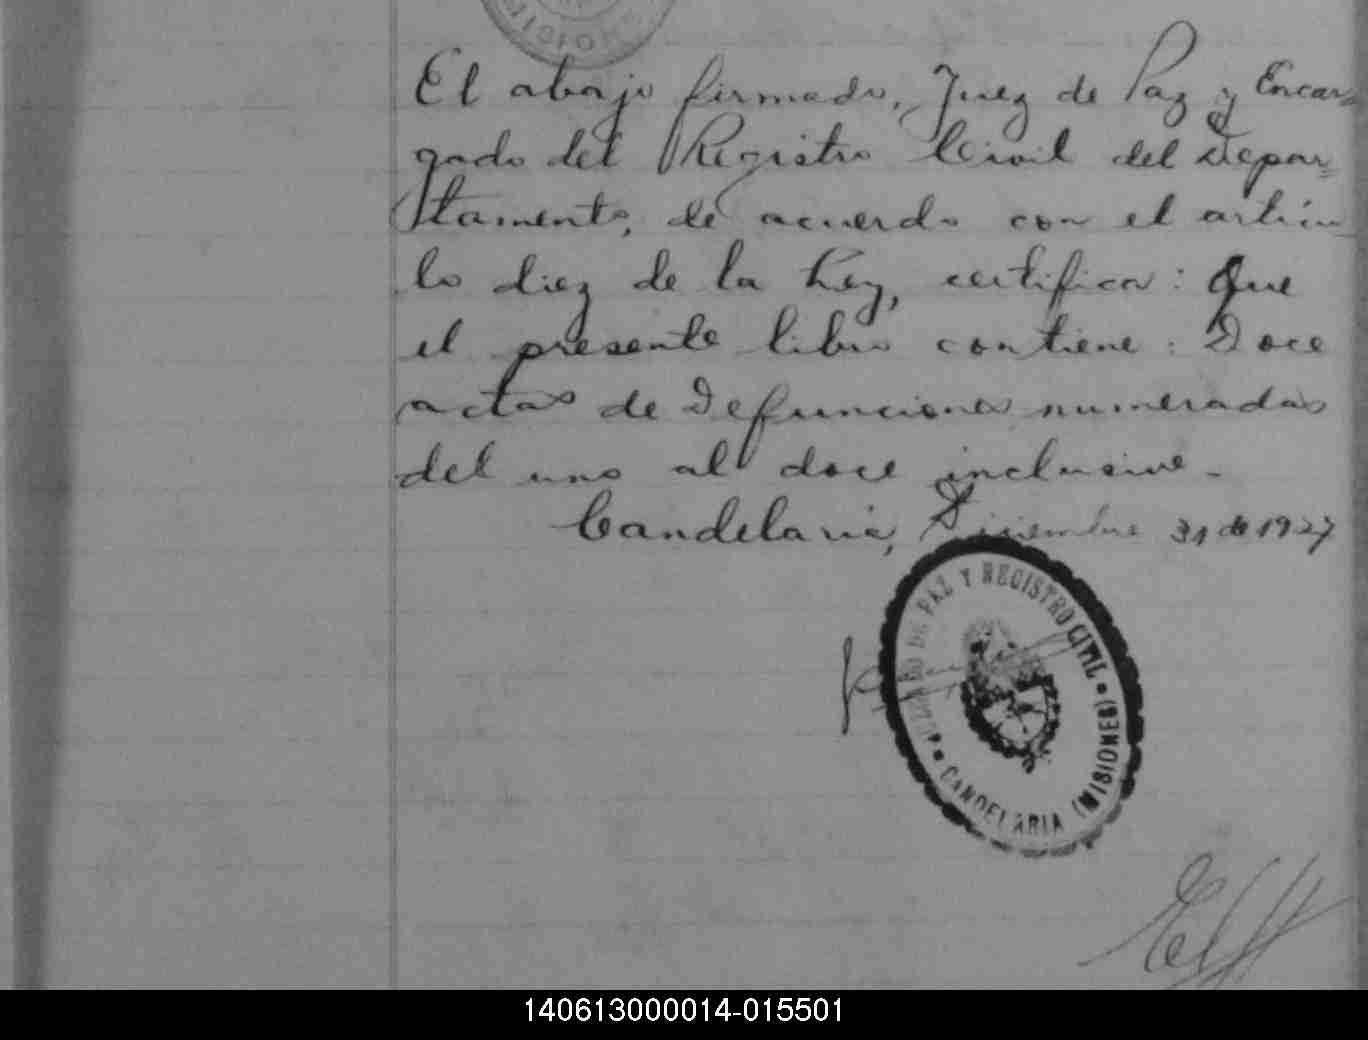 El abajo firmado, Juez de Paz y Encar=
gado del Registro Civil del Depar=
tamento, de acuerdo con el artícu
lo diez de la Ley, certifica: Que
el presente libro contiene: Doce
actas de Defunciones numeradas
del uno al doce inclusive.-
Candelaria, Diciembre 31 de 1927
JUZGADO DE PAZ Y REGISTRO CIVIL
CANDELARIA (MISIONES)
140613000014-015501